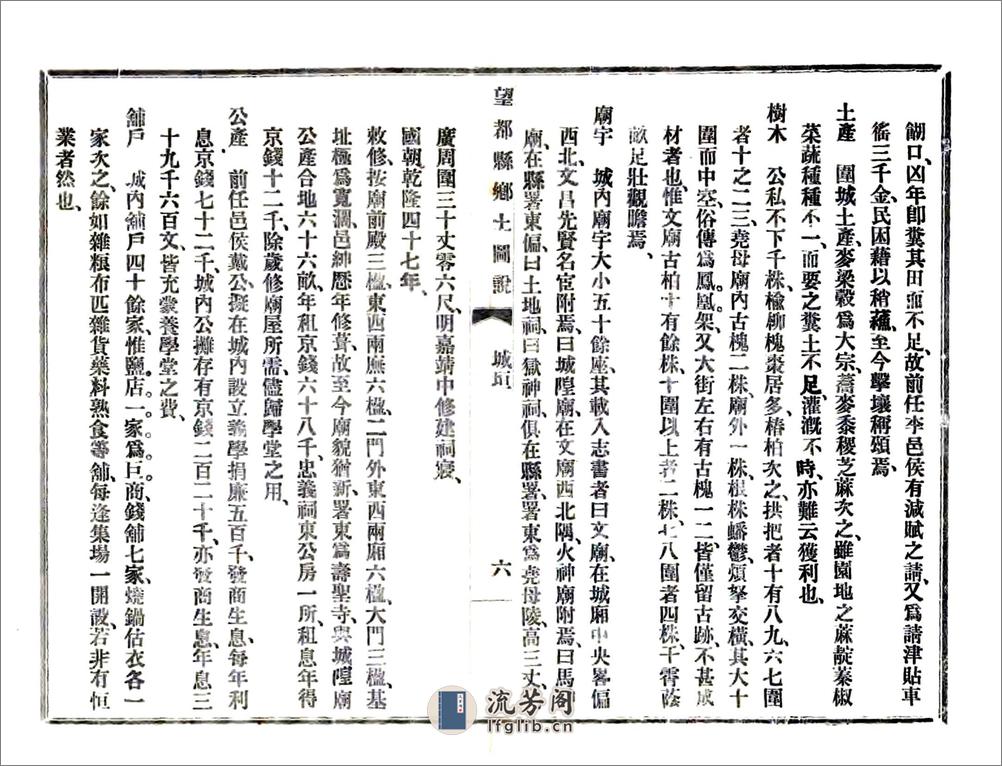 餬口、凶年卽糞其田而不足、故前任李邑侯有減賦之請、又爲請津貼車
徭三千金、民困藉以稍蘓、至今擊壤稱頌焉、
土產　圍城土產、麥梁穀爲大宗、蕎麥黍稷芝蔴次之、雖園地之蔴靛蓁椒
菜蔬種種不一、而要之糞土不足、灌漑不時、亦難云獲利也、
樹木　公私不下千株、榆柳槐棗居多、椿柏次之、拱把者十有八九、六七圍
者十之二三、堯母廟內古槐二株、廟外一株、根株蟠鬱、煩拏交橫、其大十
圍而中空、俗傳爲鳳凰架、又大街左右有古槐一二、皆僅留古跡、不甚成
材者也、惟文廟古柏十有餘株、十圍以上者二株、七八圍者四株、干霄蔭
畝、足壯觀瞻焉、
廟宇　城內廟宇大小五十餘座、其載入志書者曰文廟、在城廂中央畧偏
西北、文昌先賢名宦附焉、曰城隍廟、在文廟西北隅、火神廟附焉、曰馬神
廟、在縣署東偏、曰土地祠、曰獄神祠、俱在縣署、署東爲堯母陵、高三丈、
望都縣鄉土圖說　城垣　六
廣周圍三十丈零六尺、明嘉靖中修建祠寢、
國朝乾隆四十七年、
敕修、按廟前殿三楹、東西兩廡六楹、二門外東西兩廂六楹、大門三楹、基
址極爲寬濶、邑紳歷年修葺、故至今廟貌猶新、署東爲壽聖寺、與城隍廟
公產合地六十六畝、年租京錢六十八千、忠義祠東公房一所、租息年得
京錢十二千、除歲修廟屋所需、儘歸學堂之用、
公產　前任邑侯戴公擬在城內設立義學、捐廉五百千、發商生息、每年利
息京錢七十二千、城內公攤存有京錢二百二十千、亦發商生息、年息三
十九千六百文、皆充蒙養學堂之費、
舖戶　城內舖戶四十餘家、惟鹽店一家爲巨商、錢舖七家、燒鍋估衣各一
家次之、餘如雜粮布匹雜貨藥料熟食等舖、每逢集場一開設、若非有恒
業者然也、
流芳阁
lfglib.cn